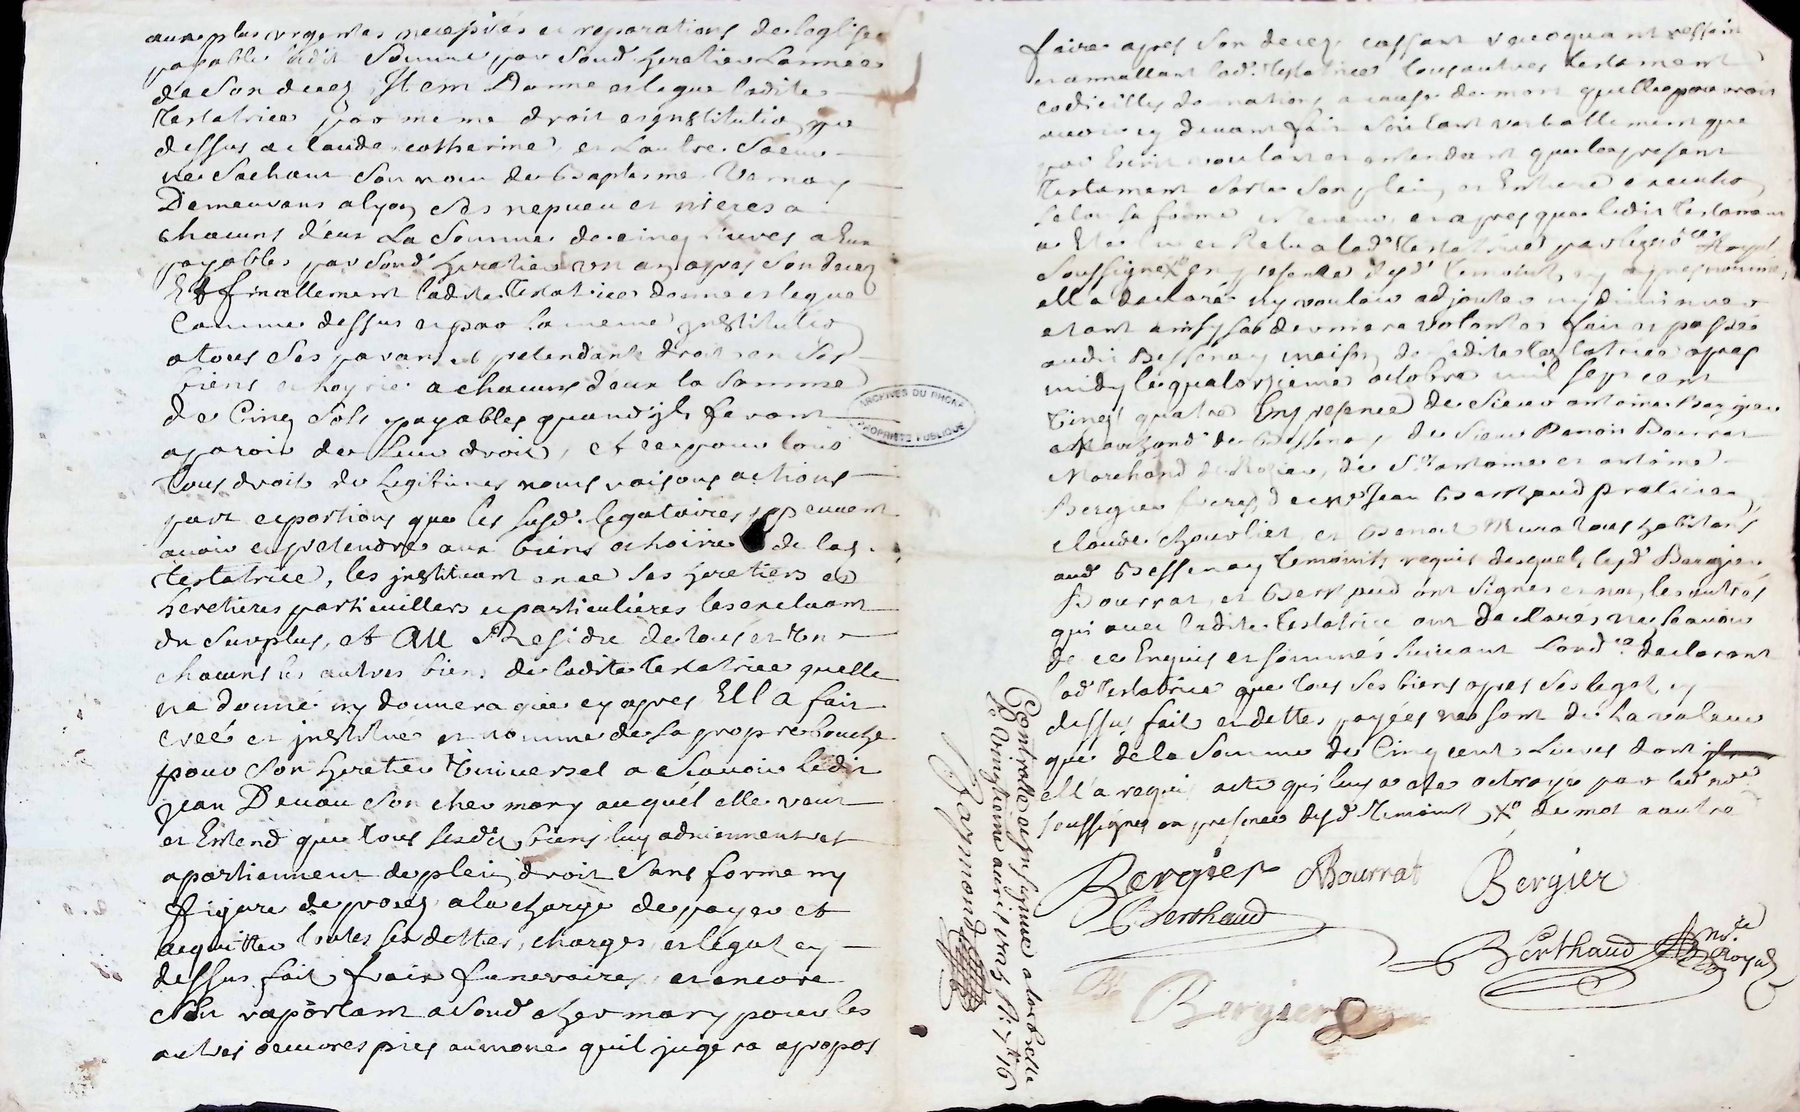 aux plus urgentes necessités et reparations de leglise
payable ladit somme par soud. heretier lannee
de son decez, Item Donne et legue ladite
Testatrice par meme droit et institution que
dessus a claude, catherine, et lautre soeur
ne sachant son nom de baptesme Vernay
Demeurans a lyon ses nepveu et nieces a
chacuns d'eux La somme de cinq livres a Eux
payables par soud. heretier un an apres son decez
Et finallement ladite Testatrice donne et legue
comme dessus et par la meme institution
a tous ses parans et pretendants droit en ses
biens et hoyrie a chacuns d'eux la somme
de Cinq sols payables quand ils feront
aparoir de leur droit, et ce pour tous
tous droits de legitimes noms raisons actions
part et portions que les susd. legataires peuvent
avoir et pretendre aux biens et hoirie de lad.
testatrice, les instituant en ce ses heretiers et
heretieres particuillers et particulieres les excluant
du surplus, et AU Residu de tous et un
chacuns les autres biens de ladite Testatrice quelle
na donné ny donnera cie en apres Ell a fait
creé et institue et nomme de sa propre bouche
pour son heretier Universel a scavoir ledit
jean Devau son cher mary auquél elle veut
et Entend que tous sesdit biens luy adviennent et
apartiennent de plein droit sans forme ny
figure de procez a la charge de payer et
acquitter toutes ses dettes, charges, et légat cy
dessus fait frais funeraires, et encore
s'en raportant a soud. cher mary pour les
autres oeuvres pies aumone qu'il jugera apropos
ARCHIVES DU RHONE
PROPRIETE PUBLIQUE
faire apres son decez cassant revoquant
et annullant lad. testatrice tous autres testament
codicilles donnations a cause de mort quelle pouvroit
avoir cy devant fait soit tant verballement que
par Escrit voulant et entendant que le present
testament sorte son plein et Entiere execution
selon sa forme et teneur, et apres que ledit testament
a Eté leu et Releu a lad. testatrice par le Royal
soussigné en presence desd. temoins cy apres nommés
ell a declaré ny vouloir adjouter ny diminuer
etant ainsy sa derniere volonté fait et passé
audit Bessenay maison de ladite testatrice apres
midy le quatorzieme octobre mil sept cent
vingt quatre En presence de sieur antoine Bergier
Marchand de Bessenay, de sieur Benoit Bourrat
Marchand de, de St. antoine et antoine
Bergier freres, de Me Jean Berthaud praticien,
claude, et Benoit tous habitans
aud. Bessenay temoins requis desquels lesd. Bergier
Bourrat, et Berthaud ont signés et non les autres
qui avec ladite testatrice ont declarés ne scavoir
de ce Enquis et sommés suivant Lord.ce declarant
lad. testatrice que tous ses biens apres ses legat cy
dessus fait et dettes payées ne sont de la valeur
que de la somme de Cinq cent Livres dont
ell a requis acte qui luy a ete octroye par led. no.re
soussigné en presence desd. temoins, de mot a autre
Bergier Bourrat Bergier
Berthaud
Berthaud no.re Royal
Bergier
Controllé et insinué a larbrelle
le vingtieme